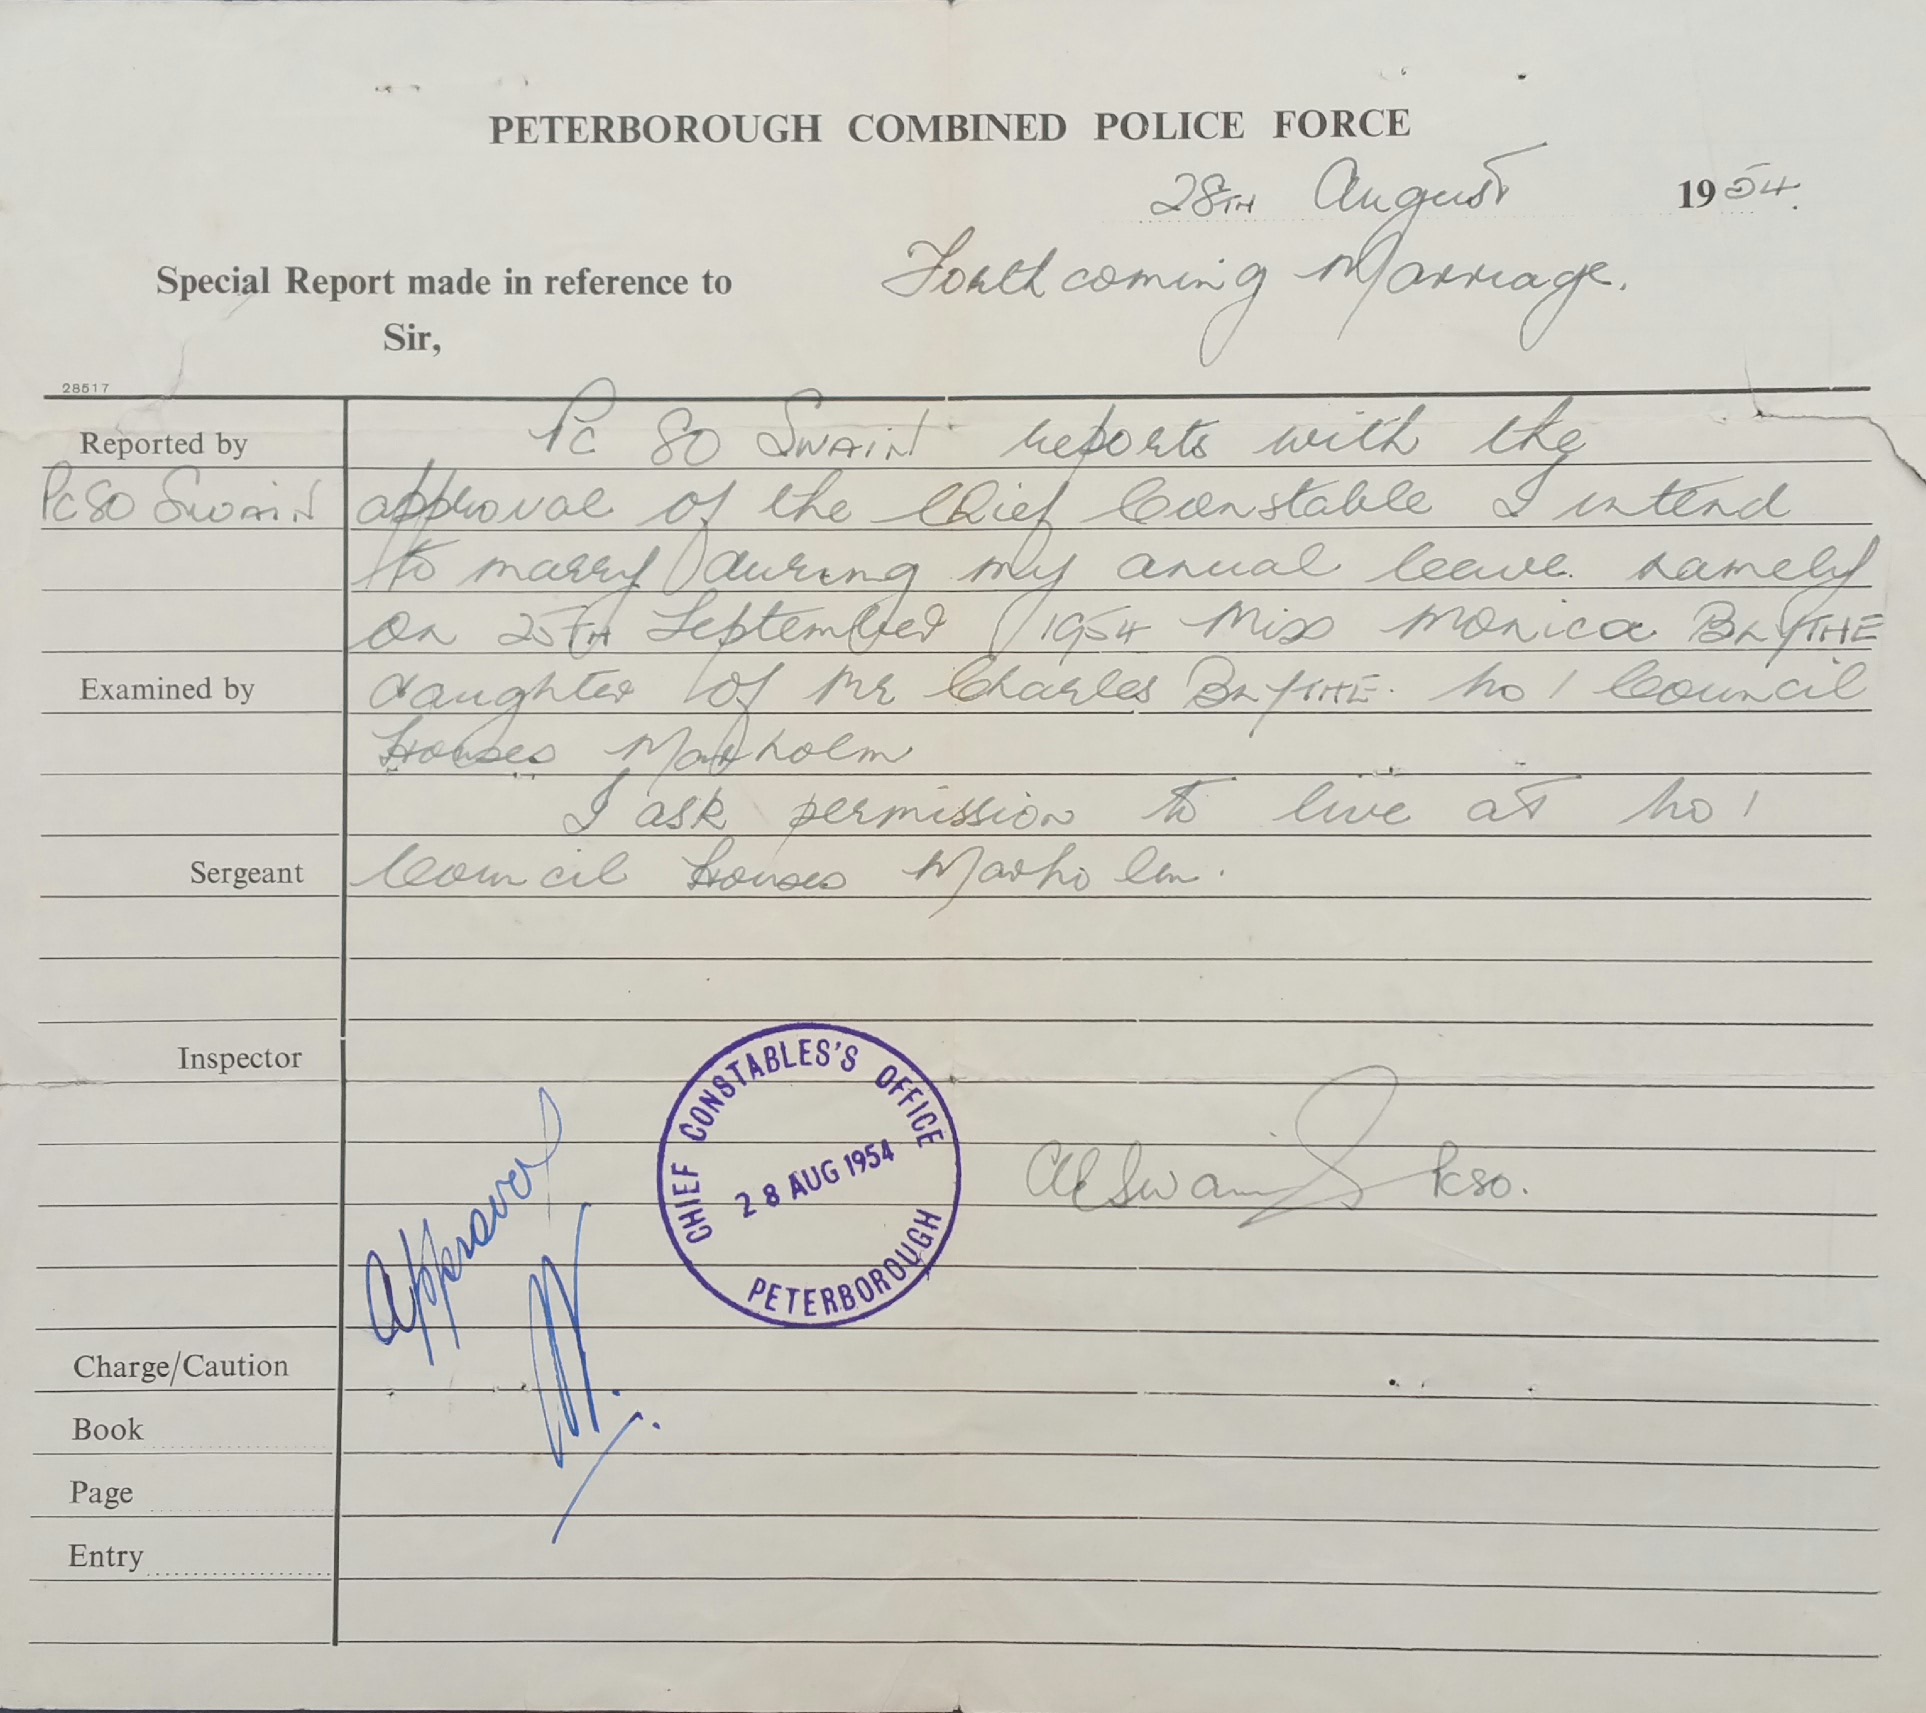 PETERBOROUGH COMBINED POLICE FORCE
28TH August 1954.
Special Report made in reference to Forthcoming Marriage.
Sir,
28517
Reported by
PC 80 SWAIN reports with the
PC 80 SWAIN
approval of the Chief Constable I intend
to marry during my anual leave. namely
on 25TH September 1954 Miss Monica BLYTHE
Examined by
daughter of Mr Charles BLYTHE. No 1 Council
Houses Marholm
I ask permission to live at No 1
Sergeant
Council Houses Marholm.
Inspector
CHIEF CONSTABLES'S OFFICE
28 AUG 1954
PETERBOROUGH
Swain PC 80.
Approved
Charge/Caution
Book
Page
Entry